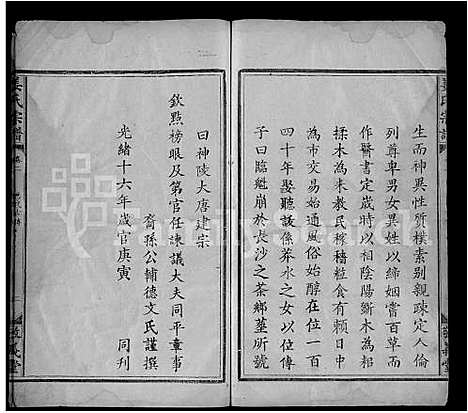 生而神異性質樸素别親疎定人倫
列尊卑男女異姓以締姻嘗百草而
作醫書定歲時以相陰陽斲木為耜
揉木為耒教民稼穡粒食有賴日中
為市交易始通風俗始醇在位一百
四十年娶聽詙係莽水之女以位傳
子曰臨魁崩於長沙之茶鄉
所號
曰神陵大唐建宗
欽點榜眼及第官任諫議大夫同平章事
裔孫公輔德文氏謹撰
光緒十六年歲官庚寅 同刋
姜氏宗譜